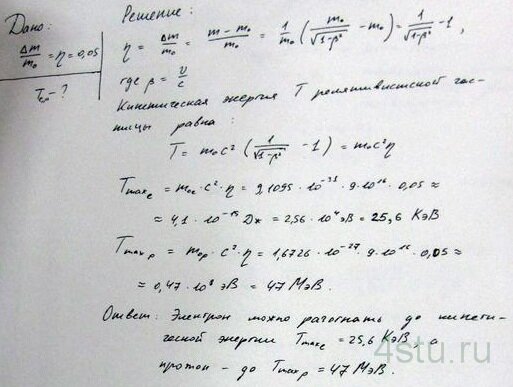 Дано:
Δm/m₀ = η = 0,05
T_m - ?
Решение:
η = Δm/m₀ = (m - m₀)/m₀ = 1/m₀ (m₀/√(1-β²) - m₀) = 1/√(1-β²) - 1,
где β = υ/c
Кинетическая энергия T релятивистской час-
тицы равна:
T = m₀c² (1/√(1-β²) - 1) = m₀c²η
T_max e = m₀e · c² · η = 9,1095 · 10⁻³¹ · 9 · 10¹⁶ · 0,05 ≈
≈ 4,1 · 10⁻¹⁵ Дж = 2,56 · 10⁴ эВ = 25,6 КэВ
T_max p = m₀p · c² · η = 1,6726 · 10⁻²⁷ · 9 · 10¹⁶ · 0,05 ≈
≈ 0,47 · 10⁸ эВ = 47 МэВ.
Ответ: Электрон можно разогнать до кинети-
ческой энергии T_max e = 25,6 КэВ, а
протон - до T_max p = 47 МэВ.
4stu.ru